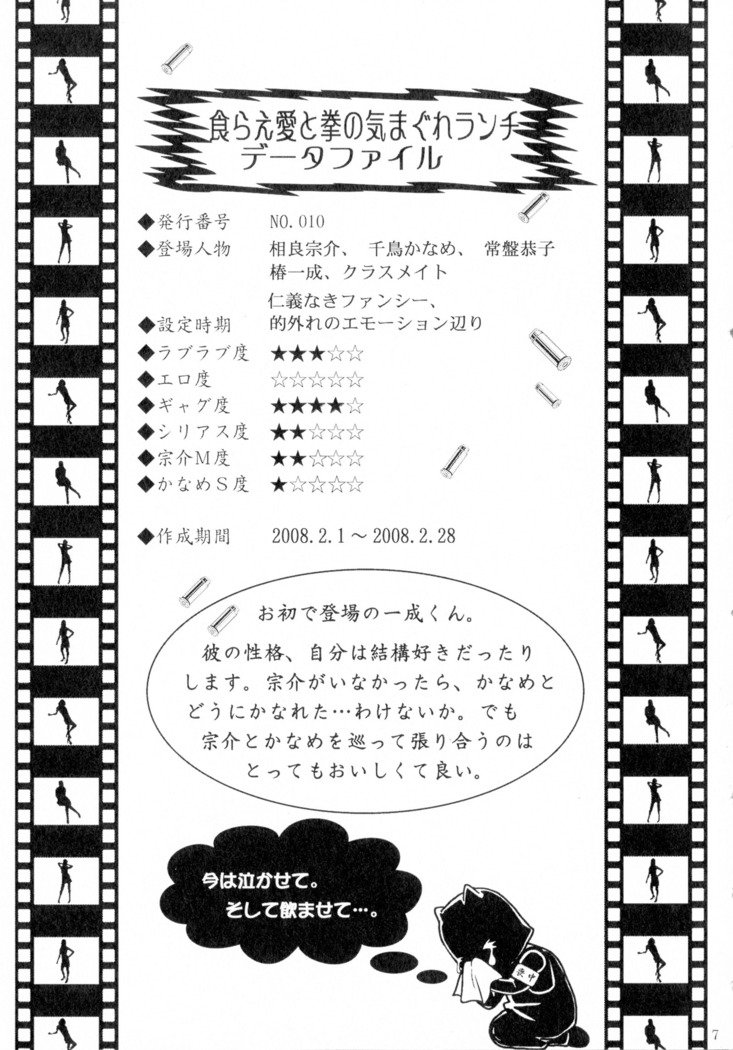 食らえ愛と拳の気まぐれランチ
データファイル
◆発行番号 NO.010
◆登場人物 相良宗介、千鳥かなめ、常盤恭子
椿一成、クラスメイト
仁義なきファンシー、
◆設定時期 的外れのエモーション辺り
◆ラブラブ度 ★★★☆☆
◆エロ度 ☆☆☆☆☆
◆ギャグ度 ★★★★☆
◆シリアス度 ★★☆☆☆
◆宗介M度 ★★☆☆☆
◆かなめS度 ★☆☆☆☆
◆作成期間 2008.2.1～2008.2.28
お初で登場の一成くん。
彼の性格、自分は結構好きだったり
します。宗介がいなかったら、かなめと
どうにかなれた…わけないか。でも
宗介とかなめを巡って張り合うのは
とってもおいしくて良い。
今は泣かせて。
そして飲ませて…。
喪中
7